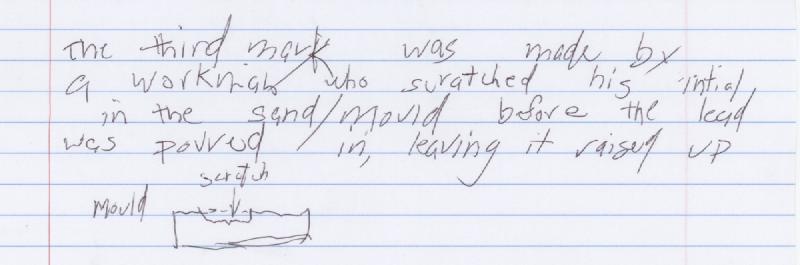 The third mark was made by
a workman who scratched his intial,
in the sand/mould before the lead
was poured in, leaving it raised up
scratch
Mould